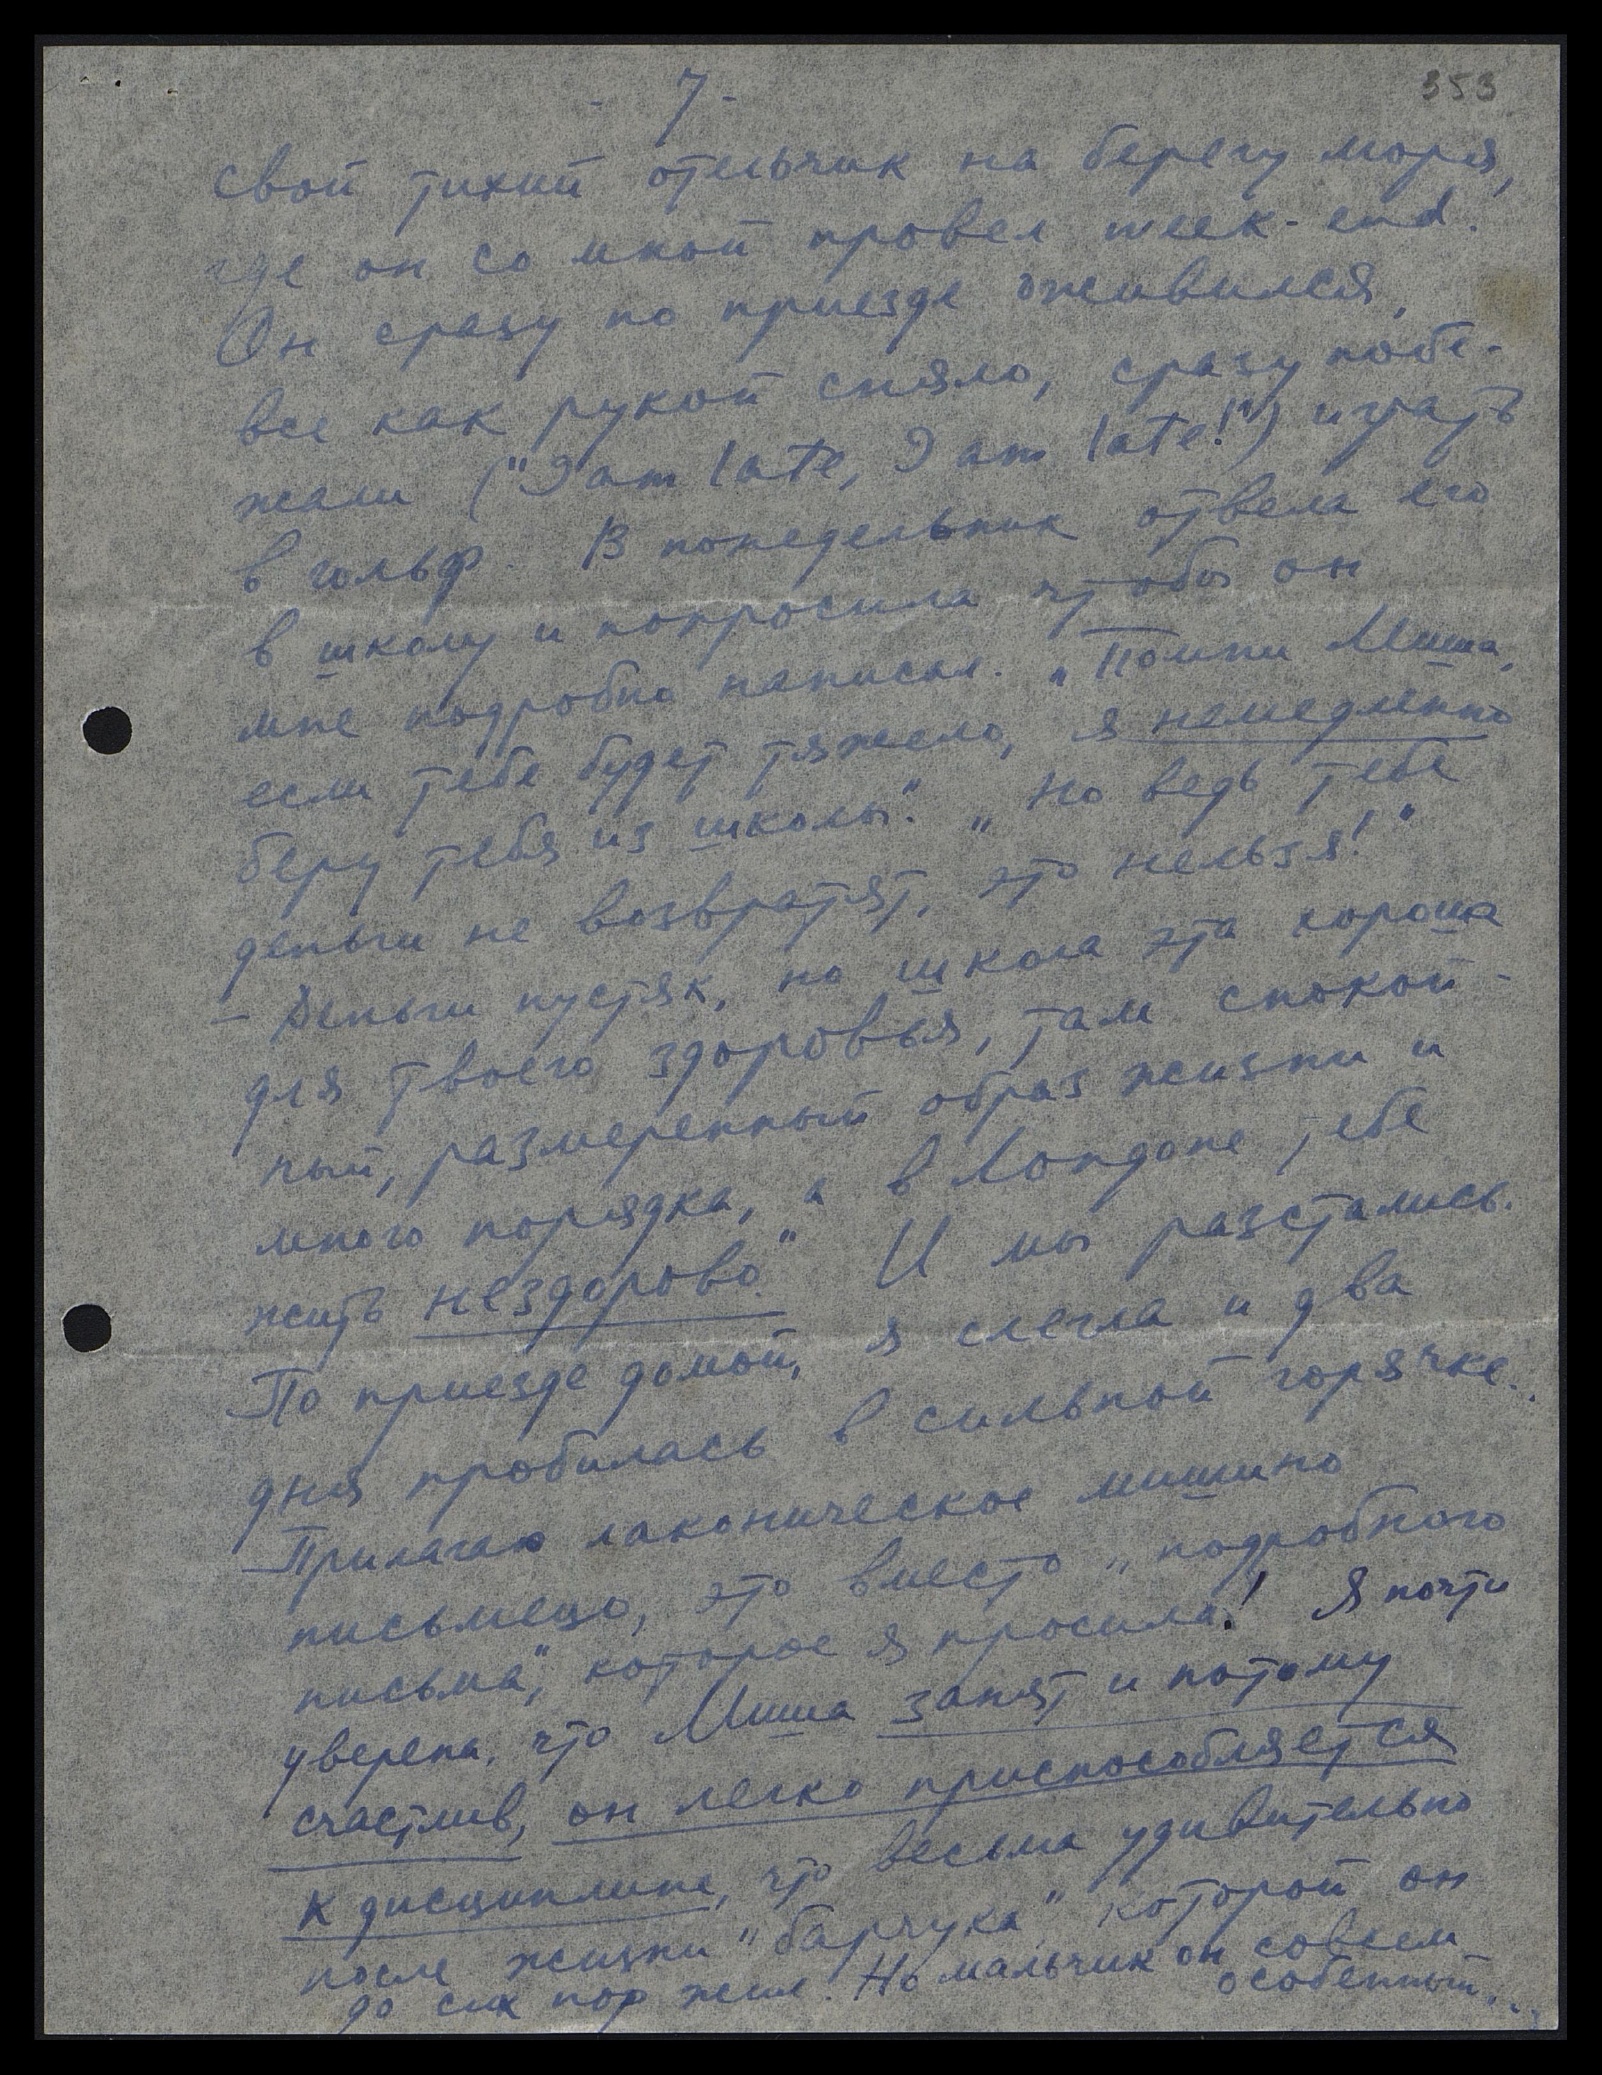 - 7 -
353
свой тихий отельчик на берегу моря,
где он со мной провел week-end.
Он сразу по приезде оживился,
все как рукой сняло, сразу побе-
жали ("I am late, I am late!") играть
в гольф. В понедельник отвела его
в школу и попросила чтобы он
мне подробно написал. „Помни Миша,
если тебе будет тяжело, я немедленно
беру тебя из школы." „Но ведь тебе
деньги не возвратят, это нельзя!"
— Деньги пустяк, но школа эта хороша
для твоего здоровья, там спокой-
ный, размеренный образ жизни и
много порядка, а в Лондоне тебе
жить нездорово." И мы разстались.
По приезде домой, я слегла и два
дня пробилась в сильной горячке...
Прилагаю лаконическое мишино
письмецо, это вместо „подробного
письма", которое я просила! Я почти
уверена, что Миша занят и потому
счастлив, он легко приспособляется
к дисциплине, что весьма удивительно
после жизни "барчука" которой он
до сих пор жил. Но мальчик он совсем
особенный...